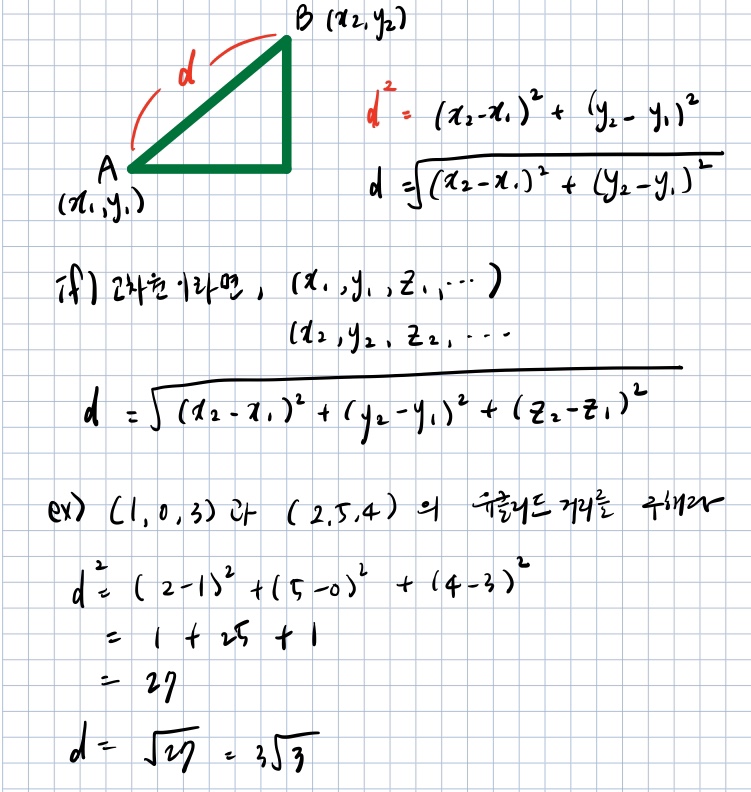 B (x₂, y₂)
d
A
(x₁, y₁)
d² = (x₂-x₁)² + (y₂-y₁)²
d = √(x₂-x₁)² + (y₂-y₁)²
if) 고차원이라면, (x₁, y₁, z₁, ⋯)
(x₂, y₂, z₂, ⋯
d = √(x₂-x₁)² + (y₂-y₁)² + (z₂-z₁)²
ex) (1, 0, 3) 과 (2, 5, 4) 의 유클리드 거리를 구해라
d² = (2-1)² + (5-0)² + (4-3)²
= 1 + 25 + 1
= 27
d = √27 = 3√3